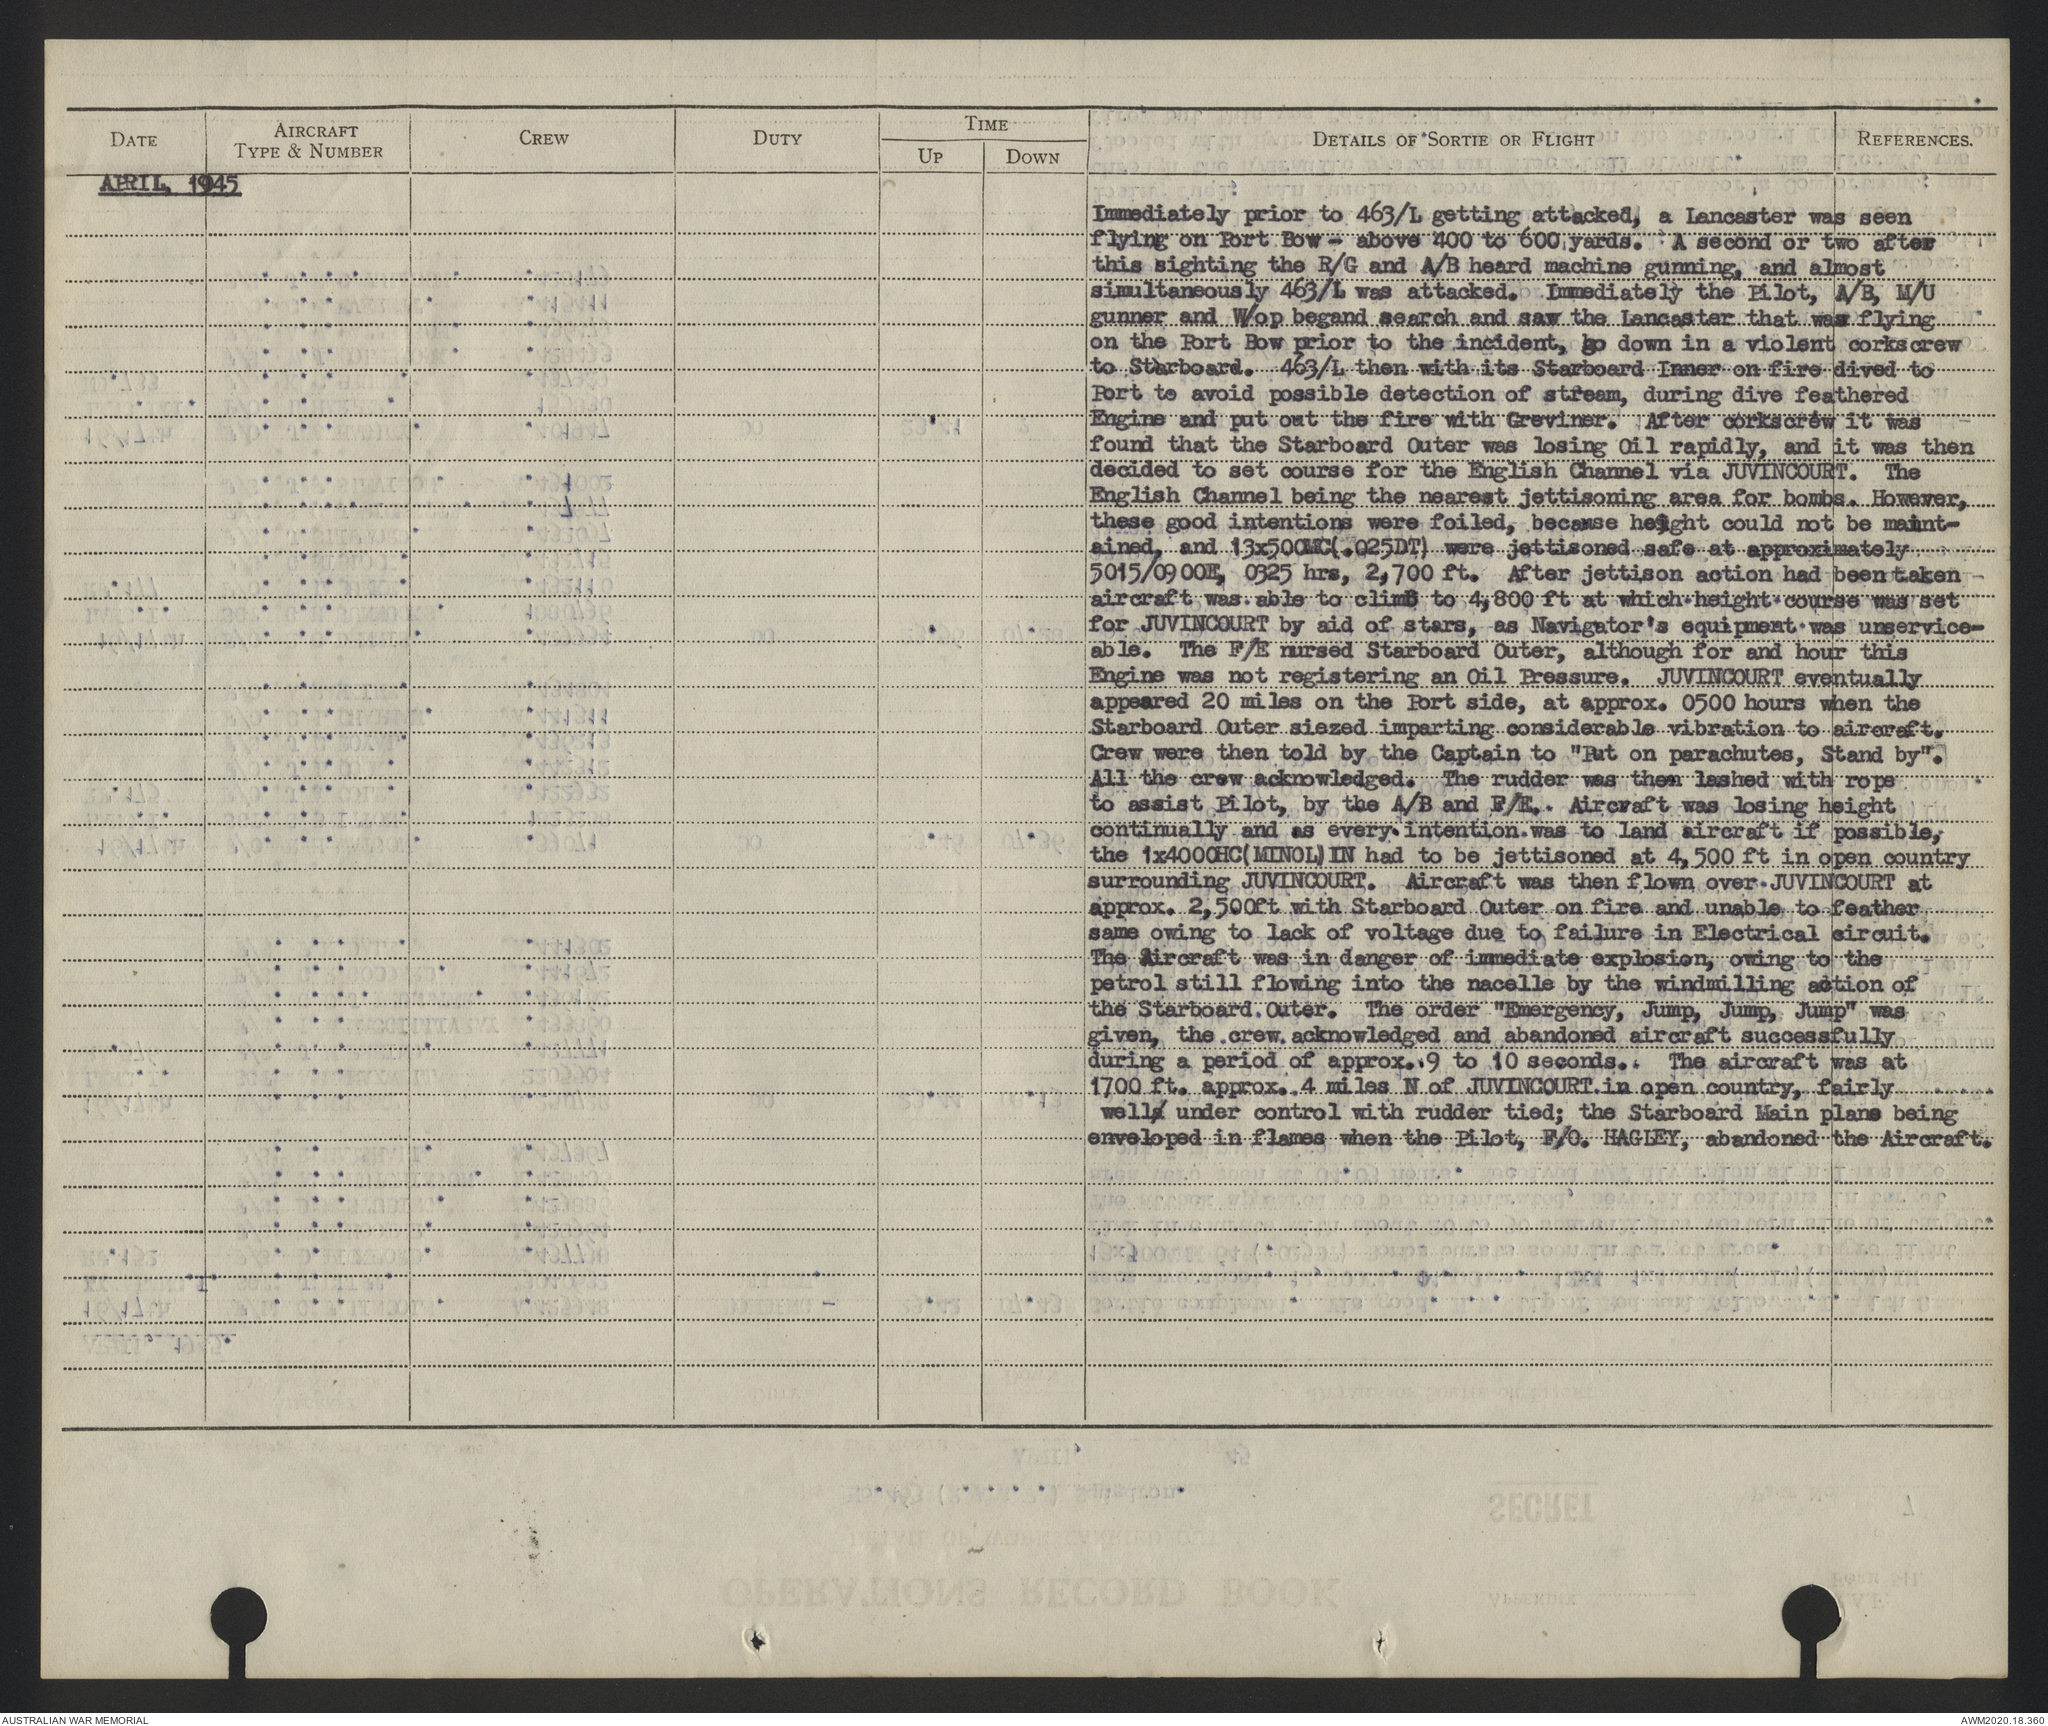 DATE
AIRCRAFT
TYPE & NUMBER
CREW
DUTY
TIME
UP
DOWN
DETAILS OF SORTIE OR FLIGHT
REFERENCES.
APRIL, 1945
Immediately prior to 463/L getting attacked, a Lancaster was seen
flying on Port Bow - above 400 to 600 yards. A second or two after
this sighting the R/G and A/B heard machine gunning, and almost
simultaneously 463/L was attacked. Immediately the Pilot, A/B, M/U
gunner and W/op begand search and saw the Lancaster that was flying
on the Port Bow prior to the incident, go down in a violent corkscrew
to Starboard. 463/L then with its Starboard Inner on fire dived to
Port to avoid possible detection of stream, during dive feathered
Engine and put out the fire with Greviner. After corkscrew it was
found that the Starboard Outer was losing Oil rapidly, and it was then
decided to set course for the English Channel via JUVINCOURT. The
English Channel being the nearest jettisoning area for bombs. However,
these good intentions were foiled, because height could not be maint-
ained, and 13x500MC(.025DT) were jettisoned safe at approximately
5015/0900E, 0325 hrs, 2,700 ft. After jettison action had been taken
aircraft was able to climb to 4,800 ft at which height course was set
for JUVINCOURT by aid of stars, as Navigator's equipment was unservice-
able. The F/E nursed Starboard Outer, although for and hour this
Engine was not registering an Oil Pressure. JUVINCOURT eventually
appeared 20 miles on the Port side, at approx. 0500 hours when the
Starboard Outer siezed imparting considerable vibration to aircraft.
Crew were then told by the Captain to "Put on parachutes, Stand by".
All the crew acknowledged. The rudder was then lashed with rope
to assist Pilot, by the A/B and F/E. Aircraft was losing height
continually and as every intention was to land aircraft if possible,
the 1x4000HC(MINOL)IN had to be jettisoned at 4,500 ft in open country
surrounding JUVINCOURT. Aircraft was then flown over JUVINCOURT at
approx. 2,500ft with Starboard Outer on fire and unable to feather
same owing to lack of voltage due to failure in Electrical circuit.
The Aircraft was in danger of immediate explosion, owing to the
petrol still flowing into the nacelle by the windmilling action of
the Starboard Outer. The order "Emergency, Jump, Jump, Jump" was
given, the crew acknowledged and abandoned aircraft successfully
during a period of approx. 9 to 10 seconds. The aircraft was at
1700 ft. approx. 4 miles N of JUVINCOURT in open country, fairly
well under control with rudder tied; the Starboard Main plane being
enveloped in flames when the Pilot, F/O. HAGLEY, abandoned the Aircraft.
AUSTRALIAN WAR MEMORIAL
AWM2020.18.360